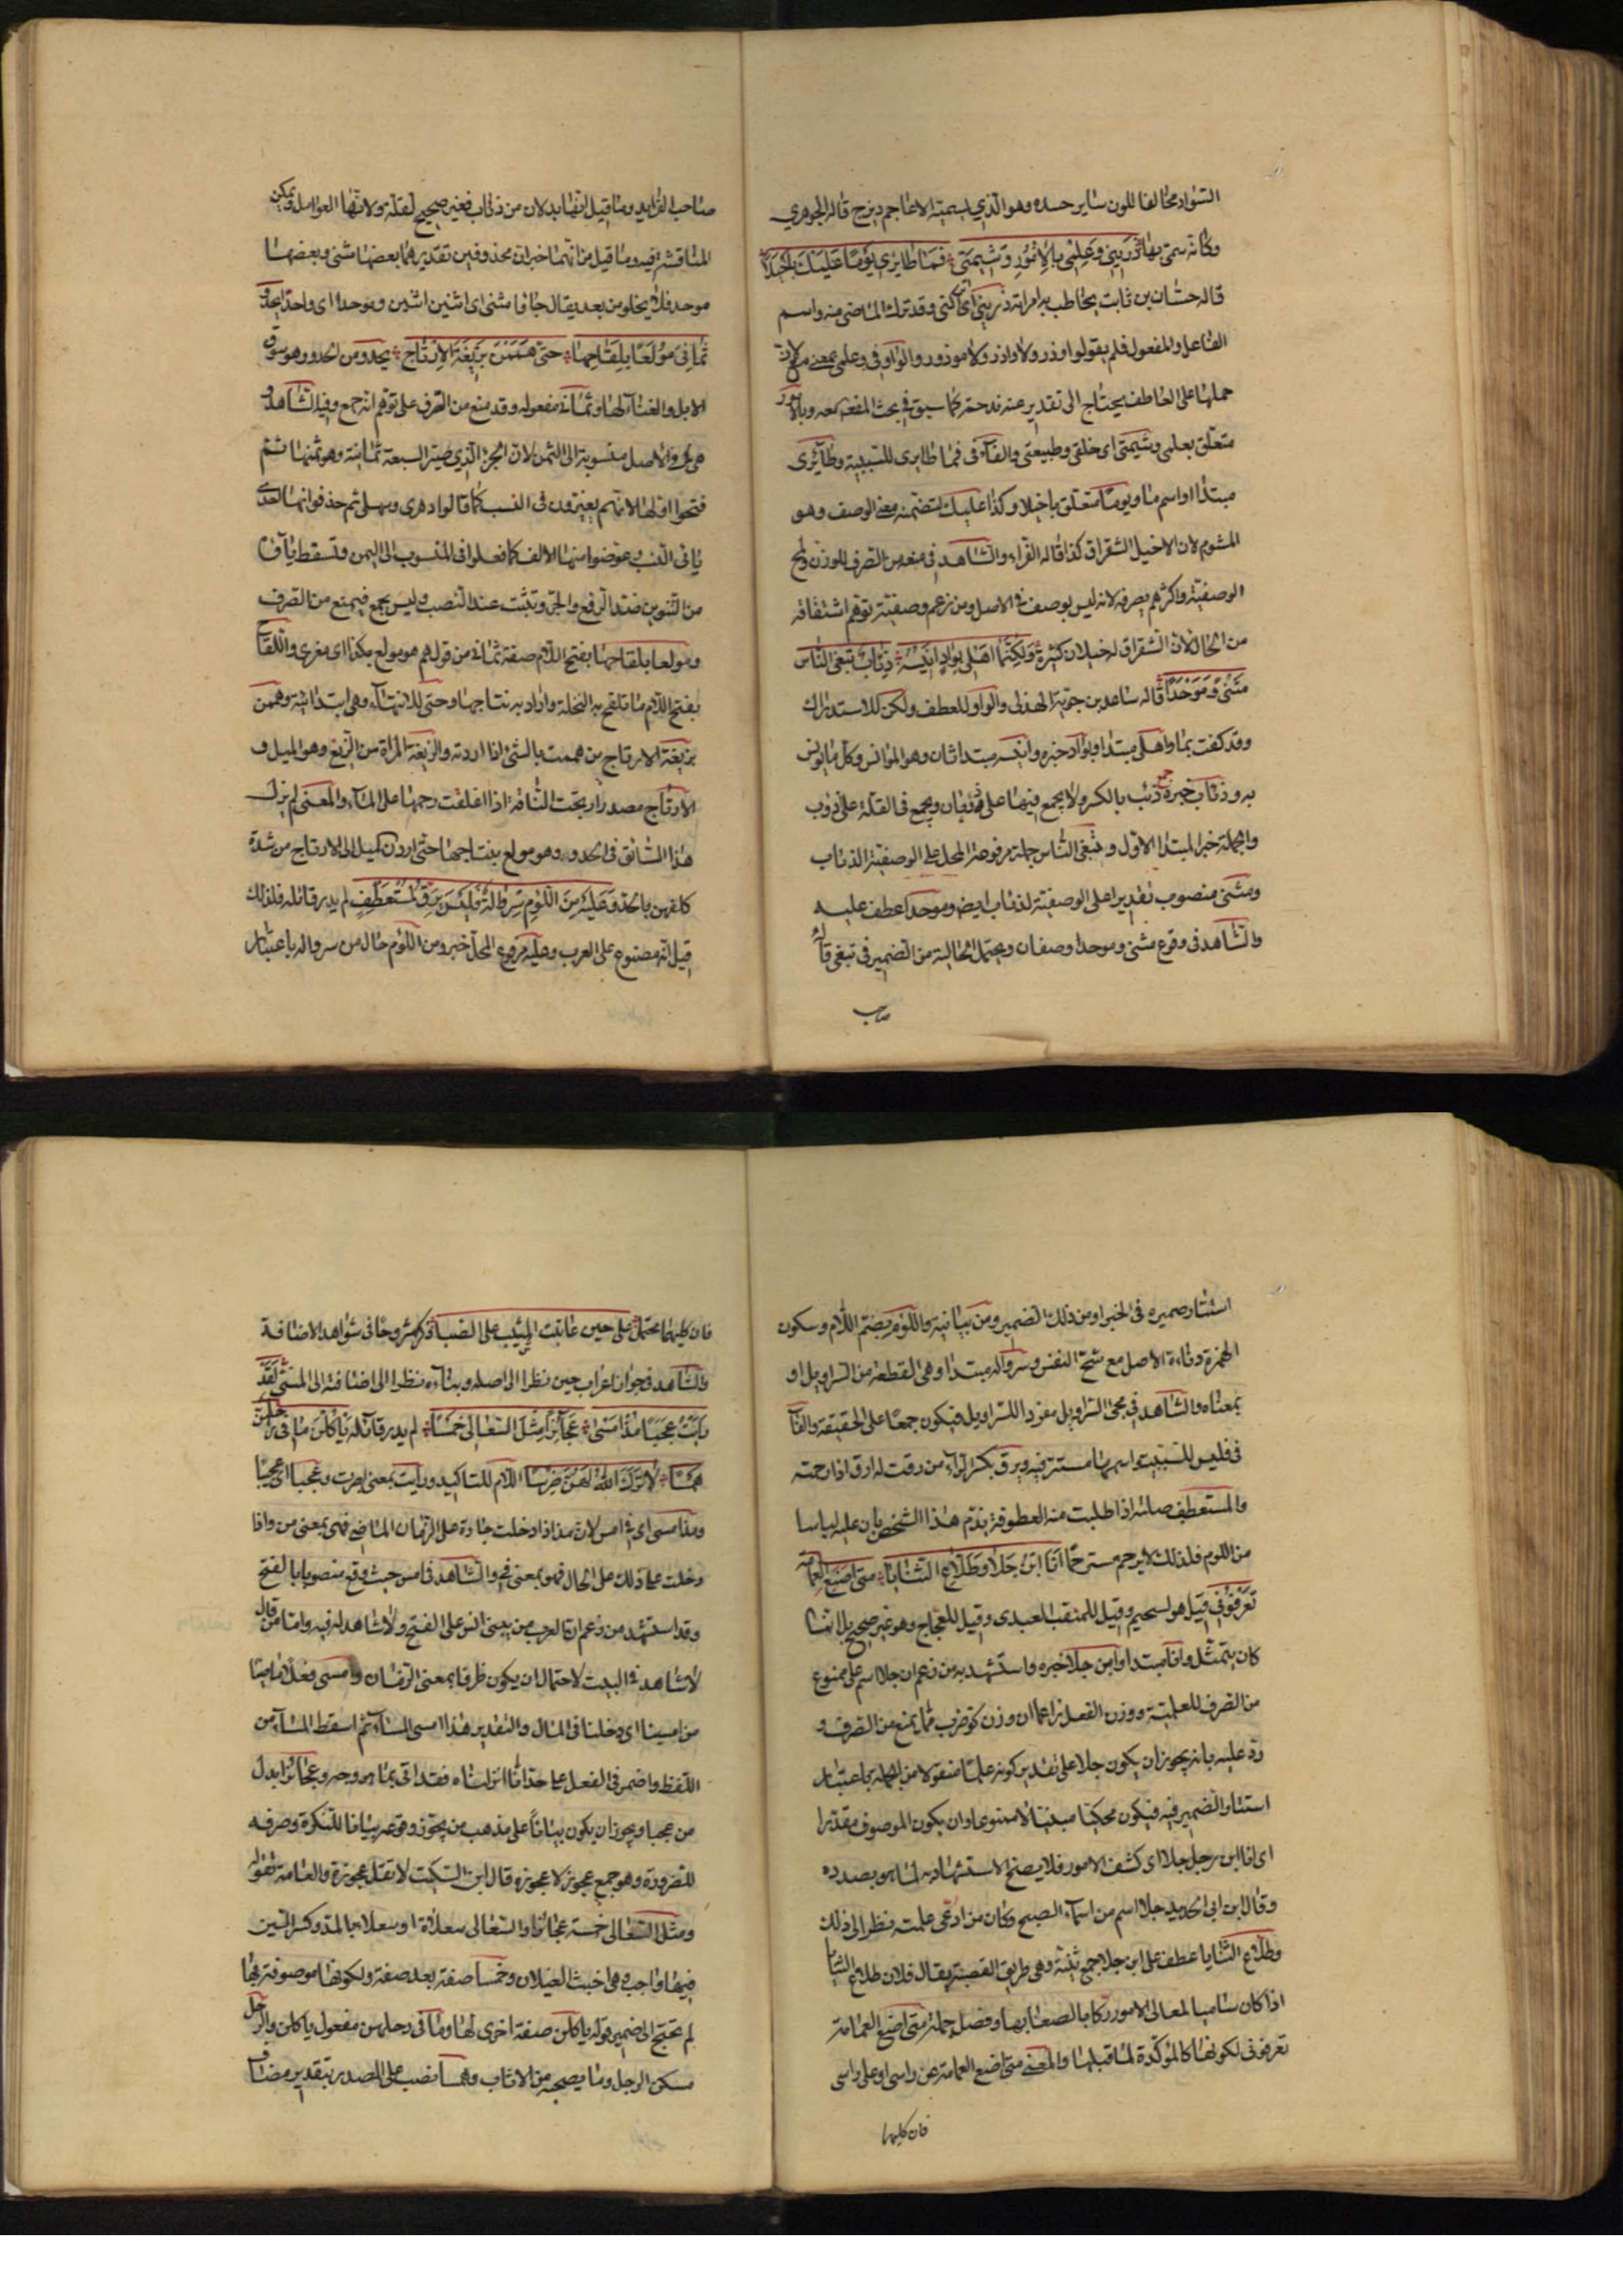 السواد مخالفا للون ساير جسده وهو الذي يسميه الاعاجم ديزج قاله الجوهري
وكانه سمي بها ذريني وعلمي بالامور وشيمتي فما طايري يوما عليك باخيلا
قاله حسان بن ثابت يخاطب به امراته ذريني اي اتركني وقد ترك الماضي منه واسم
الفاعل والمفعول فلم يقولوا وذر ولا واذر ولا موذور والواو في وعلمي بمعنى مع لان
حملها على العاطف يحتاج الى تقدير كما سبق في بحث المفعول معه وبالامور
متعلق بعلمي وشيمتي اي خلقي وطبيعتي والفاء في فما طايري للسببية وطائري
مبتدا او اسم ما ويوما متعلق باخيلا وكذا عليك لتضمنه معنى الوصف وهو
المشوم لان الاخيل الشقراق كذا قاله الفراء والشاهد في منعه من الصرف للوزن ولمح
الوصفية واكثرهم يصرفه لانه ليس بوصف في الاصل ومن زعم وصفيته توهم اشتقاقه
من الخال لان الشقراق له خيلان كثيرة ولكنما اهلي بواد انيسه ذئاب تبغى الناس
مثنى وموحدا قاله ساعد بن جوية الهذلي والواو للعطف ولكن للاستدراك
وقد كفت بما واهلي مبتدا وبواد خبره وانيسه مبتدا ثان وهو الموانس وكل ما يونس
به وذئاب خبره جمع ذئب بالكسر ولا يجمع فيها على ذؤبان ويجمع في القلة على اذوب
والجملة خبر المبتدا الاول وتبغى الناس جملة مرفوعة المحل على الوصفية الذئاب
ومثنى منصوب تقديرا على الوصفية لذئاب ايضا وموحدا عطف عليه
والشاهد في وقوع مثنى وموحدا وصفان ويحتمل الحالية من الضمير في تبغى قاله
صاحب
صاحب الفرايد وما قيل انهما بدلان من ذئاب فغير صحيح لقلة ولائهما العوامل ويمكن
المناقشة فيه وما قيل من انهما خبران محذوفين تقديرهما بعضها مثنى وبعضها
موحد فلا يخلو من بعد يقال جاؤا مثنى اي اثنين اثنين وموحدا اي واحدا واحدا يحدو
ثماني مولعا بلقاحها حتى هممن بزيغة الارتاج يحدو من الحدو وهو سوق
الابل والغناء لها وثماني مفعوله وقد منع من الصرف على توهم انه جمع وفيه الشاهد و
هي في الاصل منسوبة الى الثمن لان الجزء الذي صير السبعة ثمانية وهو ثمنها ثم
فتحوا اولها لانهم يغيرون في النسب كما قالوا دهري وسهلي ثم حذفوا منها احدى
يائي النسب وعوضوا منها الالف كما فعلوا في المنسوب الى اليمن وتسقط ياؤها
من التنوين عند الرفع والجر وتثبت عند النصب وليس بجمع فيمنع من الصرف
ومولعا بلقاحها بفتح اللام صفة ثماني من قولهم هو مولع بكذا اي مغرى واللقاح
بفتح اللام ما تلقح به النخلة واراد به نتاجها وحتى للانتهاء وهي ابتدائية وهممن
بزيغة الارتاج من هممت بالشئ اذا اردته والزيغة المرة من الزيغ وهو الميل و
الارتاج مصدر ارتجت الناقة اذا اغلقت رحمها على الماء والمعنى لم يزل
هذا السائق في الحدو وهو مولع بنتاجها حتى اردن لميل الى الارتاج من شدة
كلفهن بالحدو عليه من اللؤم سروالة فليس يرق لمستعطف لم يدر قائله فلذلك
قيل انه مصنوع على العرب وعليه مرفوع المحل خبر ومن اللؤم حال من سرواله باعتبار
استتار ضميره في الخبر او من ذلك الضمير ومن بيانية واللؤم بضم اللام وسكون
الهمزة دناءة الاصل مع شح النفس وسرواله مبتدا وهي القطعة من السراويل او
بمعناه والشاهد في مجئ السراويل مفردا للسراويل فيكون جمعا على الحقيقة والفاء
في فليس للسببية اسمها مستتر فيه ويرق بكسر الراء من رققت له ارق اذا رحمته
والمستعطف صلته اذا طلبت منه العطوفة بذم هذا الشخص بان عليه لباسا
من اللوم فلذلك لا يرحم مسترحما انا ابن جلا وطلاع الثنايا متى اضع العمامة
تعرفوني قيل هو لسحيم وقيل للمثقب العبدي وقيل للحجاج وهو غير صحيح بل انما
كان يتمثل وانا مبتدا وابن جلا خبره واستشهد به من زعم ان جلا اسم على ممنوع
من الصرف للعلمية ووزن الفعل زاعما ان وزن كو ضرب مما يمنع من الصرف و
رد عليه بانه يجوز ان يكون جلا على تقدير كونه علما منقولا من الجملة باعتبار
استتار الضمير فيه فيكون محكيا مبنيا لا ممنوعا وان يكون الموصوف مقدرا
اي انا ابن رجل جلا اي كشف الامور فلا يصح الاستشهاد به لما هو بصدده
وقال ابن ابي الحديد جلا اسم من اسماء الصبح وكان من ادعى علميته نظر الى ذلك
وطلاع الثنايا عطف على ابن جلا جمع ثنية وهي طريق العقبة يقال فلان طلاع الثنايا
اذا كان ساميا لمعالي الامور ركابا لصعابها وفصل جملة متى اضع العمامة
تعرفوني لكونها كالمؤكدة لما قبلها والمعنى متى اضع العمامة عن راسي او على راسي
فان كليهما
فان كليهما يحتمل على حين عاتبت المشيب على الصبا ذكر مشروحا في شواهد الاضافة
والشاهد في جواز اعراب حين نظرا الى اصله وبنائه نظرا الى اضافته الى المبني لقد
رايت عجبا مذ امسى عجائزا مثل السعالى خمسا لم يدر قائله ياكلن ما في رحلهن
همسا لا ترك الله لهن ضرسا اللام للتاكيد ورايت بمعنى ابصرت وعجبا اي عجيبا
ومذ امسى اي في امس لان مذ اذا دخلت جارة على الزمان الماضي فهي بمعنى من واذا
دخلت على ذلك على الحال فهو بمعنى في والشاهد في امس حيث وقع منصوبا بالفتح
وقد استشهد من زعم ان العرب من يبني امس على الفتح ولا شاهد له فيه واما من قال
لا شاهد في البيت لاحتمال ان يكون ظرفا بمعنى الزمان وامسى فعلا ماضيا
من امسينا اي دخلنا في المساء والتقدير هذا امسى المساء ثم اسقط المساء من
اللفظ واضمر في الفعل على حد انا انزلناه فقد اتى بما هو وجه وعجائزا بدل
من عجبا ويجوز ان يكون بيانا على مذهب من يجوز وقوعه بيانا للنكرة وصرفه
للضرورة وهو جمع عجوز لا عجوزة قال ابن السكيت لا تقل عجوزة والعامة تقوله
ومثل السعالى خمسة عجائز او السعالى سعلاة او سعلاء بالمد وكسر السين
فيهما واجب وهي اخبث الغيلان وخمسا صفة بعد صفة ولكونها موصوفة بها
لم تحتج الى ضمير قوله ياكلن صفة اخرى لها وما في رحلهن مفعول ياكلن والرحل
مسكن الرجل وما يصحبه من الاثاث وهمسا نصب على المصدر بتقدير مضاف